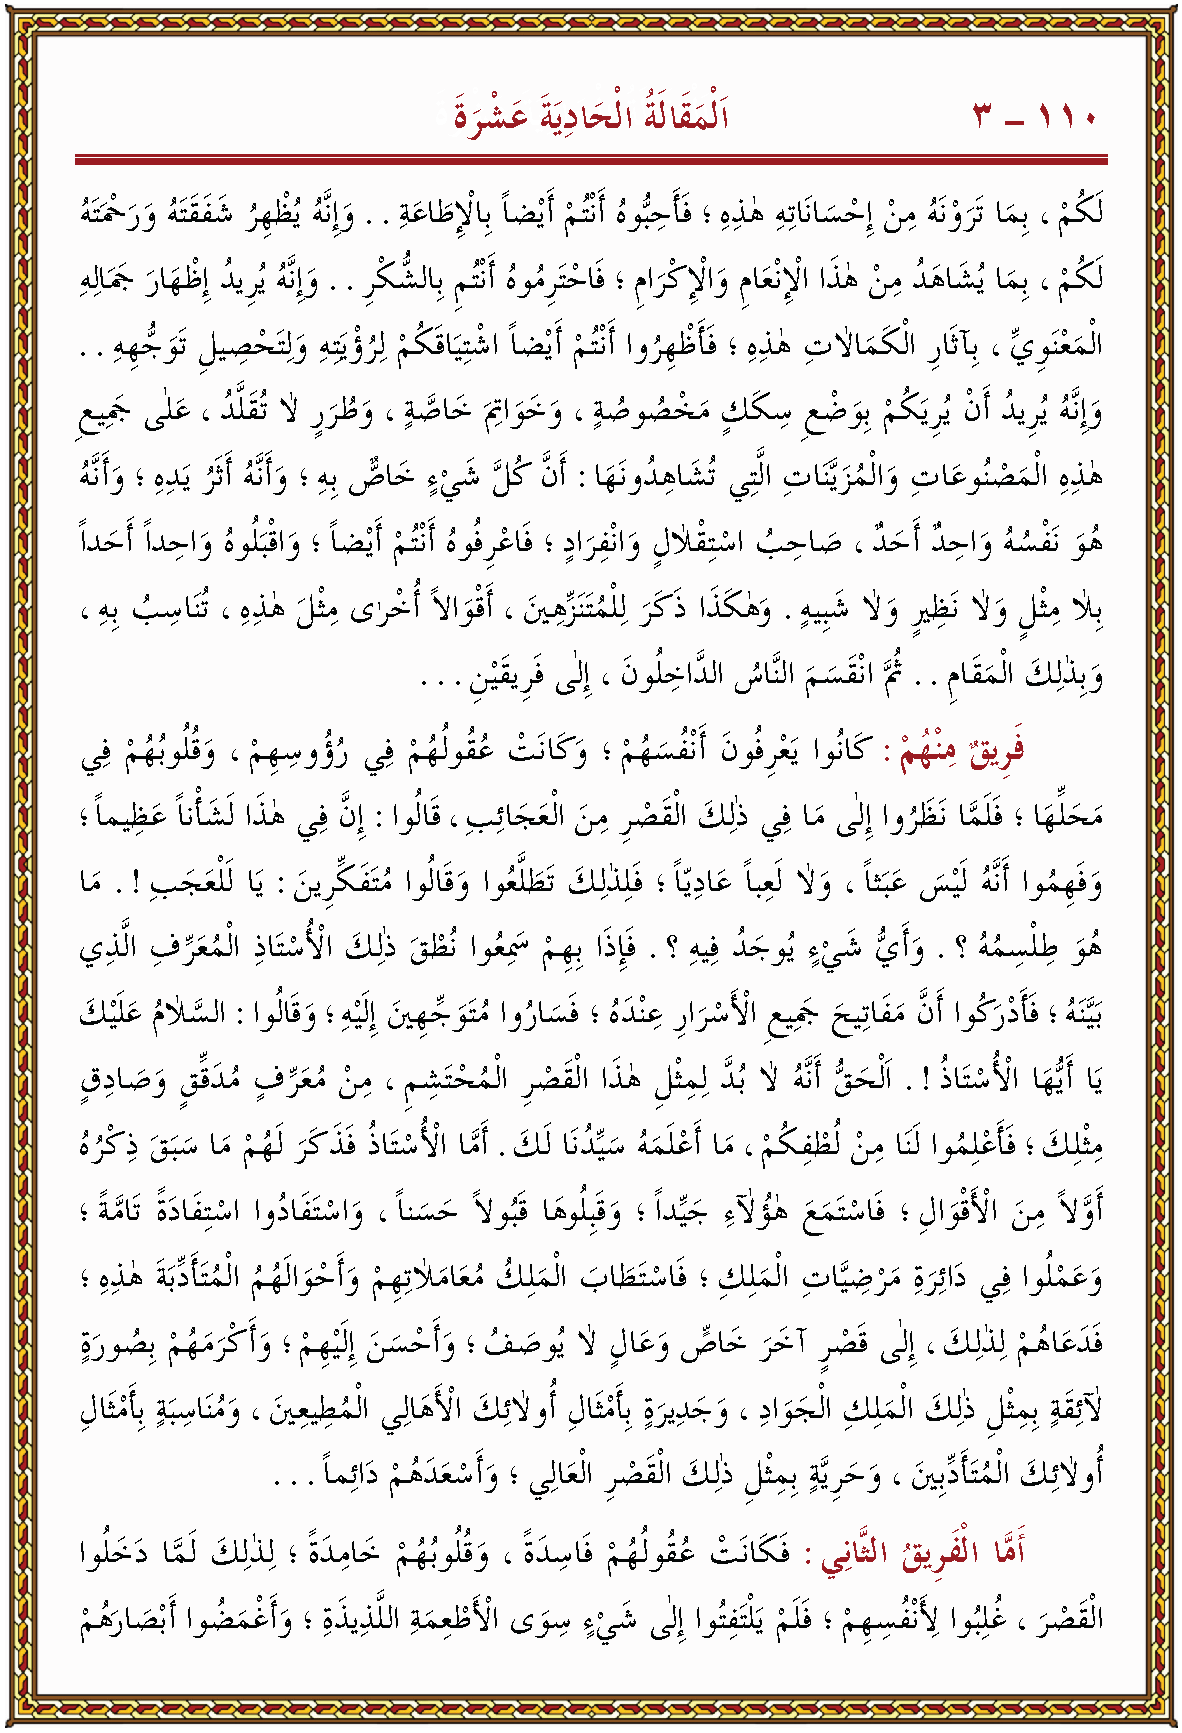 ١١٠ – ٣ اَلْمَقَالَةُ الْحَادِيَةَ عَشْرَةَ
لَكُمْ ، بِمَا تَرَوْنَهُ مِنْ إِحْسَانَاتِهِ هٰذِهِ ؛ فَأَحِبُّوهُ أَنْتُمْ أَيْضاً بِالْإِطَاعَةِ . . وَإِنَّهُ يُظْهِرُ شَفَقَتَهُ وَرَحْمَتَهُ
لَكُمْ ، بِمَا يُشَاهَدُ مِنْ هٰذَا الْإِنْعَامِ وَالْإِكْرَامِ ؛ فَاحْتَرِمُوهُ أَنْتُمْ بِالشُّكْرِ . . وَإِنَّهُ يُرِيدُ إِظْهَارَ جَمَالِهِ
الْمَعْنَوِيِّ ، بِآثَارِ الْكَمَالَاتِ هٰذِهِ ؛ فَأَظْهِرُوا أَنْتُمْ أَيْضاً اشْتِيَاقَكُمْ لِرُؤْيَتِهِ وَلِتَحْصِيلِ تَوَجُّهِهِ . .
وَإِنَّهُ يُرِيدُ أَنْ يُرِيَكُمْ بِوَضْعِ سِكَكٍ مَخْصُوصَةٍ ، وَخَوَاتِمَ خَاصَّةٍ ، وَطُرَرٍ لَا تُقَلَّدُ ، عَلٰى جَمِيعِ
هٰذِهِ الْمَصْنُوعَاتِ وَالْمُزَيَّنَاتِ الَّتِي تُشَاهِدُونَهَا : أَنَّ كُلَّ شَيْءٍ خَاصٌّ بِهِ ؛ وَأَنَّهُ أَثَرُ يَدِهِ ؛ وَأَنَّهُ
هُوَ نَفْسُهُ وَاحِدٌ أَحَدٌ ، صَاحِبُ اسْتِقْلَالٍ وَانْفِرَادٍ ؛ فَاعْرِفُوهُ أَنْتُمْ أَيْضاً ؛ وَاقْبَلُوهُ وَاحِداً أَحَداً
بِلَا مِثْلٍ وَلَا نَظِيرٍ وَلَا شَبِيهٍ . وَهٰكَذَا ذَكَرَ لِلْمُتَنَزِّهِينَ ، أَقْوَالاً أُخْرٰى مِثْلَ هٰذِهِ ، تُنَاسِبُ بِهِ ،
وَبِذٰلِكَ الْمَقَامِ . . ثُمَّ انْقَسَمَ النَّاسُ الدَّاخِلُونَ ، إِلٰى فَرِيقَيْنِ . . .
فَرِيقٌ مِنْهُمْ : كَانُوا يَعْرِفُونَ أَنْفُسَهُمْ ؛ وَكَانَتْ عُقُولُهُمْ فِي رُؤُوسِهِمْ ، وَقُلُوبُهُمْ فِي
مَحَلِّهَا ؛ فَلَمَّا نَظَرُوا إِلٰى مَا فِي ذٰلِكَ الْقَصْرِ مِنَ الْعَجَائِبِ ، قَالُوا : إِنَّ فِي هٰذَا لَشَأْناً عَظِيماً ؛
وَفَهِمُوا أَنَّهُ لَيْسَ عَبَثاً ، وَلَا لَعِباً عَادِيّاً ؛ فَلِذٰلِكَ تَطَلَّعُوا وَقَالُوا مُتَفَكِّرِينَ : يَا لَلْعَجَبِ ! . مَا
هُوَ طِلْسِمُهُ ؟ . وَأَيُّ شَيْءٍ يُوجَدُ فِيهِ ؟ . فَإِذَا بِهِمْ سَمِعُوا نُطْقَ ذٰلِكَ الْأُسْتَاذِ الْمُعَرِّفِ الَّذِي
بَيَّنَهُ ؛ فَأَدْرَكُوا أَنَّ مَفَاتِيحَ جَمِيعِ الْأَسْرَارِ عِنْدَهُ ؛ فَسَارُوا مُتَوَجِّهِينَ إِلَيْهِ ؛ وَقَالُوا : السَّلَامُ عَلَيْكَ
يَا أَيُّهَا الْأُسْتَاذُ ! . اَلْحَقُّ أَنَّهُ لَا بُدَّ لِمِثْلِ هٰذَا الْقَصْرِ الْمُحْتَشِمِ ، مِنْ مُعَرِّفٍ مُدَقِّقٍ وَصَادِقٍ
مِثْلِكَ ؛ فَأَعْلِمُوا لَنَا مِنْ لُطْفِكُمْ ، مَا أَعْلَمَهُ سَيِّدُنَا لَكَ . أَمَّا الْأُسْتَاذُ فَذَكَرَ لَهُمْ مَا سَبَقَ ذِكْرُهُ
أَوَّلاً مِنَ الْأَقْوَالِ ؛ فَاسْتَمَعَ هٰؤُلَآءِ جَيِّداً ؛ وَقَبِلُوهَا قَبُولاً حَسَناً ، وَاسْتَفَادُوا اسْتِفَادَةً تَامَّةً ؛
وَعَمِلُوا فِي دَائِرَةِ مَرْضِيَّاتِ الْمَلِكِ ؛ فَاسْتَطَابَ الْمَلِكُ مُعَامَلَاتِهِمْ وَأَحْوَالَهُمُ الْمُتَأَدِّبَةَ هٰذِهِ ؛
فَدَعَاهُمْ لِذٰلِكَ ، إِلٰى قَصْرٍ آخَرَ خَاصٍّ وَعَالٍ لَا يُوصَفُ ؛ وَأَحْسَنَ إِلَيْهِمْ ؛ وَأَكْرَمَهُمْ بِصُورَةٍ
لَآئِقَةٍ بِمِثْلِ ذٰلِكَ الْمَلِكِ الْجَوَادِ ، وَجَدِيرَةٍ بِأَمْثَالِ أُولٰئِكَ الْأَهَالِي الْمُطِيعِينَ ، وَمُنَاسِبَةٍ بِأَمْثَالِ
أُولٰئِكَ الْمُتَأَدِّبِينَ ، وَحَرِيَّةٍ بِمِثْلِ ذٰلِكَ الْقَصْرِ الْعَالِي ؛ وَأَسْعَدَهُمْ دَائِماً . . .
أَمَّا الْفَرِيقُ الثَّانِي : فَكَانَتْ عُقُولُهُمْ فَاسِدَةً ، وَقُلُوبُهُمْ خَامِدَةً ؛ لِذٰلِكَ لَمَّا دَخَلُوا
الْقَصْرَ ، غُلِبُوا لِأَنْفُسِهِمْ ؛ فَلَمْ يَلْتَفِتُوا إِلٰى شَيْءٍ سِوَى الْأَطْعِمَةِ اللَّذِيذَةِ ؛ وَأَغْمَضُوا أَبْصَارَهُمْ